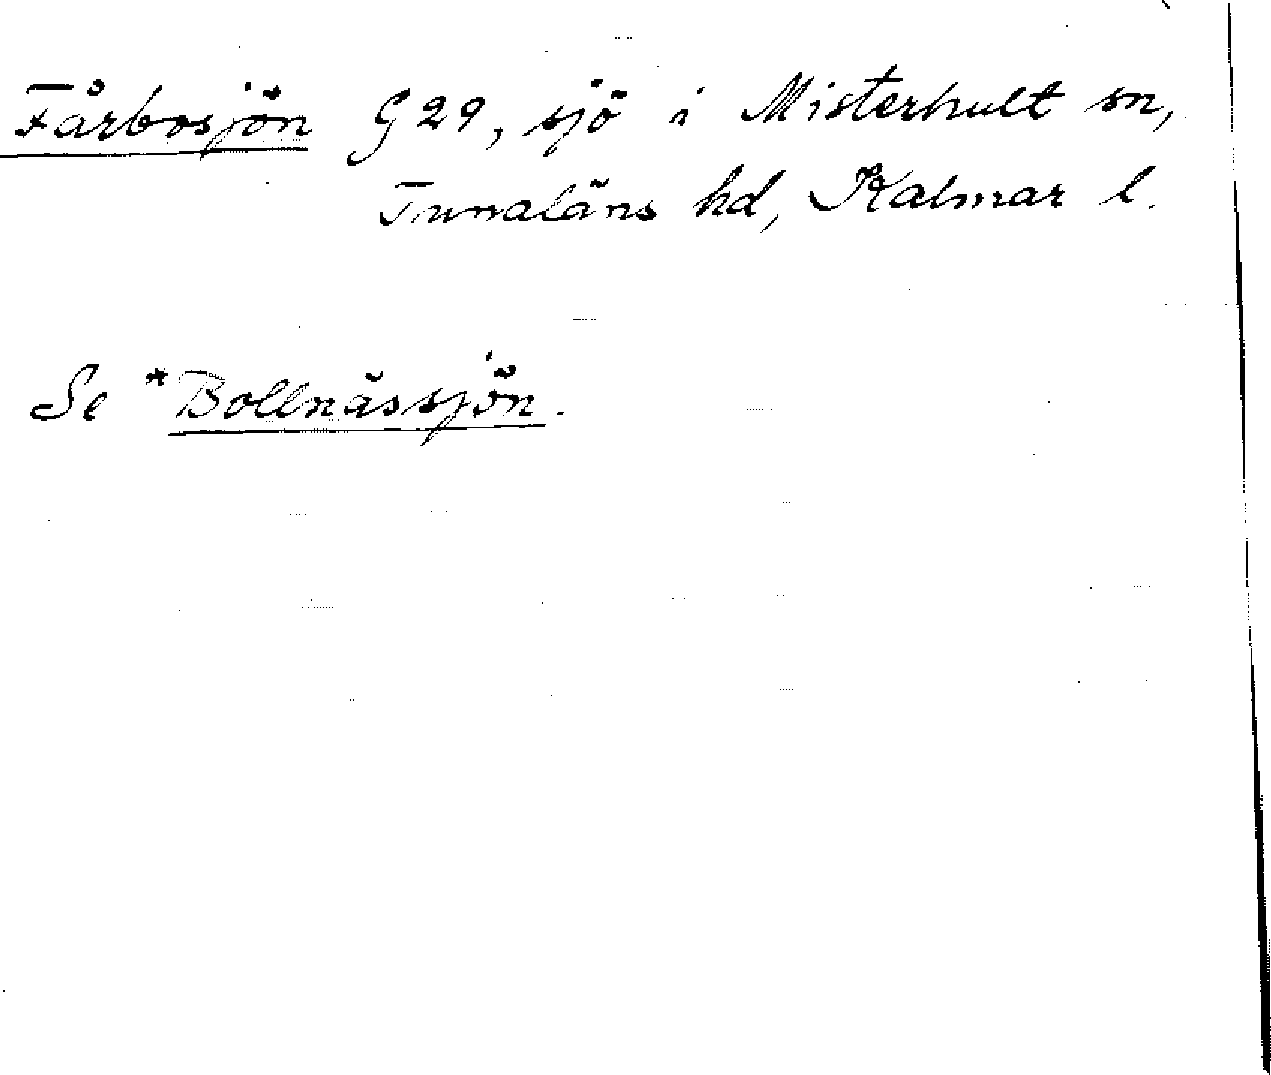 Fårbosjön G29, sjö i Misterhult sn,
Tunaläns hd, Kalmar l.
Se *Bollnässjön.